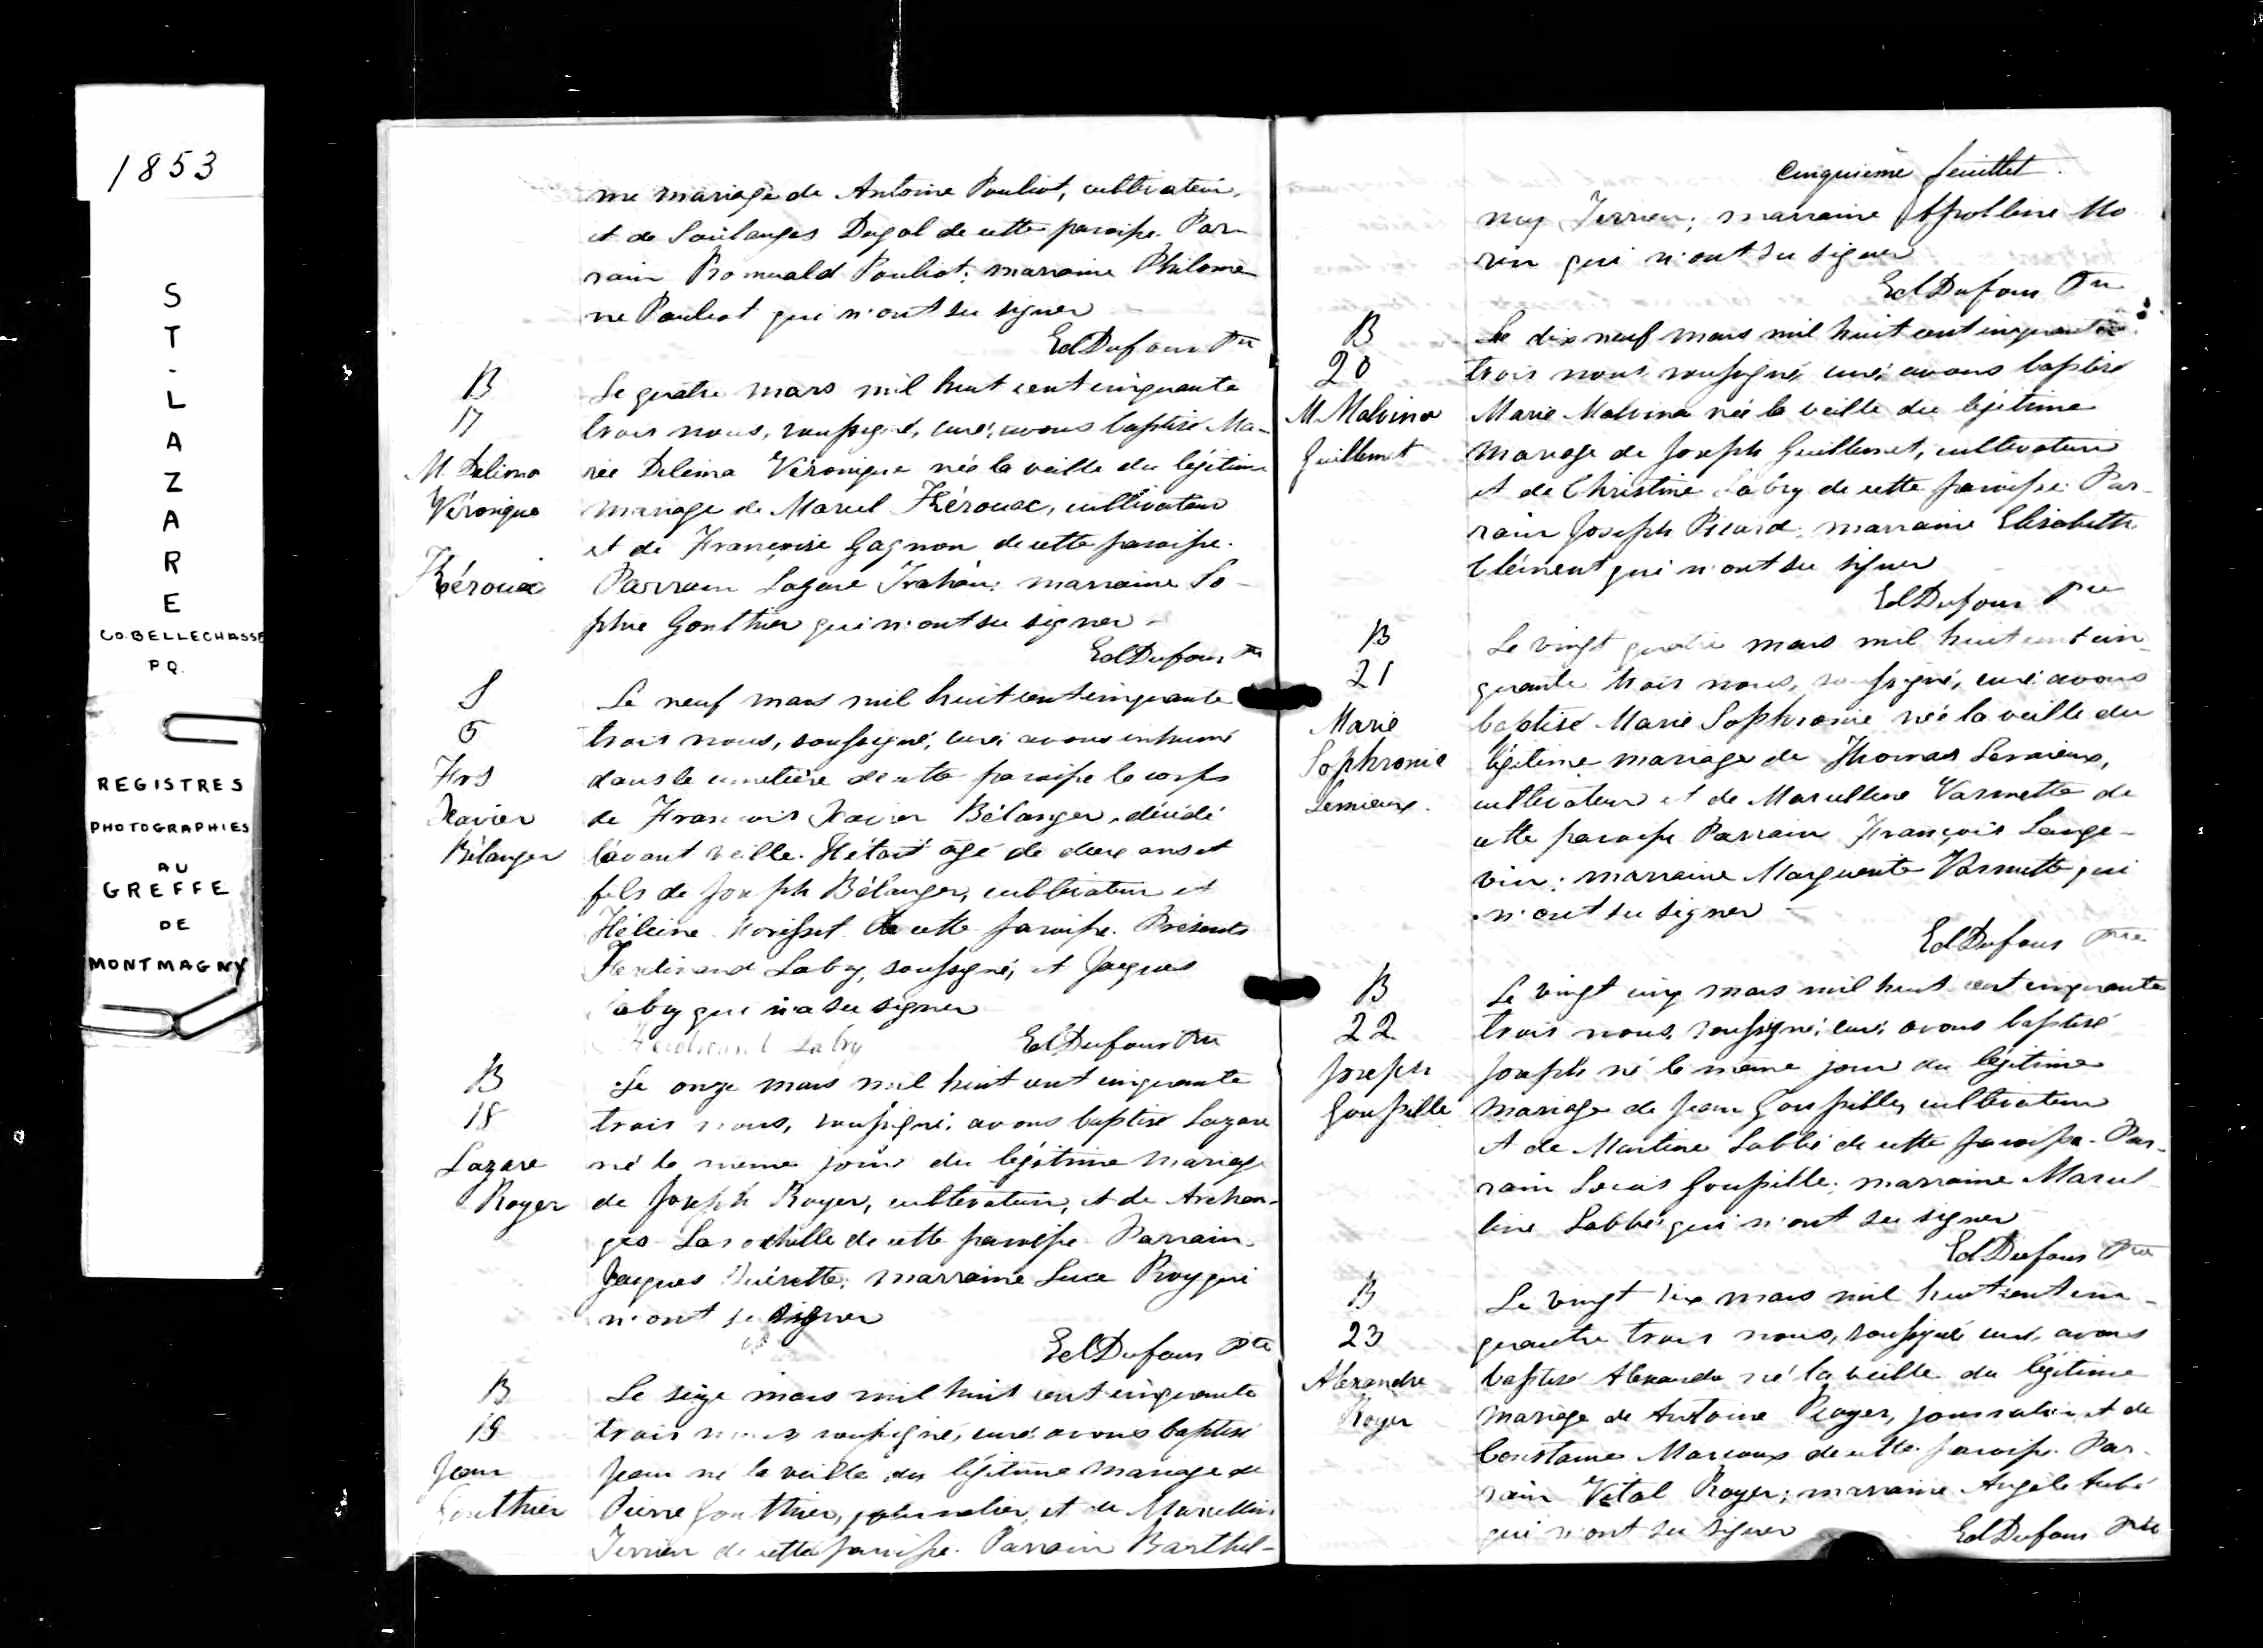 1853
ST. LAZARE
CO. BELLECHASSE
P Q.
REGISTRES
PHOTOGRAPHIES
AU
GREFFE
DE
MONTMAGNY
me mariage de Antoine Pouliot, cultivateur,
et de Soulanges Dugal de cette paroisse. Par-
rain Romuald Pouliot; marraine Philomè
ne Pouliot qui n'ont su signer
Ed Dufour Ptre
B
17
M. Delima
Véronique
Kérouac
Le quatre mars mil huit cent cinquante
trois nous, soussigné, curé, avons baptisé Ma-
rie Delima Véronique née la veille du légitime
mariage de Marcel Kérouac, cultivateur
et de Françoise Gagnon de cette paroisse.
Parrain Lazare Trahan; marraine So-
phie Gonthier qui n'ont su signer
Ed Dufour Ptre
S
5
Frs
Xavier
Bélanger
Le neuf mars mil huit cent cinquante
trois nous, soussigné, curé avons inhumé
dans le cimetière de cette paroisse le corps
de François Xavier Bélanger, décédé
l'avant veille. Il était âgé de deux ans et
fils de Joseph Bélanger, cultivateur et
Hélène Morisset de cette paroisse. Présents
Ferdinand Laby, soussigné, et Jacques
Laby qui n'a su signer
Ferdinand Laby Ed Dufour Ptre
B
18
Lazare
Royer
Le onze mars mil huit cent cinquante
trois nous, soussigné, avons baptisé Lazare
né le même jour du légitime mariage
de Joseph Royer, cultivateur, et de Archan-
ges Larochelle de cette paroisse Parrain
Jacques marraine Luce Roy qui
n'ont su signer
Ed Dufour Ptre
B
19
Jean
Gonthier
Le seize mars mil huit cent cinquante
trois nous soussigné, curé avons baptisé
Jean né la veille du légitime mariage de
Pierre Gonthier, journalier, et de Marcelline
Terrien de cette paroisse. Parrain Barthel-
Cinquième feuillet.
my Terrien; marraine Apolline Mo
rin qui n'ont su signer
Ed Dufour Ptre
B
20
M. Malvina
Guillemet
Le dix neuf mars mil huit cent cinquante
trois nous, soussigné, curé, avons baptisé
Marie Malvina née la veille du légitime
mariage de Joseph Guillemet, cultivateur
et de Christine Labry de cette paroisse Par-
rain Joseph Picard; marraine Elisabeth
Clément qui n'ont su signer
Ed Dufour Ptre
B
21
Marie
Sophronie
Lemieux.
Le vingt quatre mars mil huit cent cin-
quante trois nous, soussigné, curé avons
baptisé Marie Sophronie née la veille du
légitime mariage de Thomas Lemieux,
cultivateur et de Marcelline Vermette de
cette paroisse Parrain François Lange-
vin; marraine Marguerite Vermette qui
n'ont su signer
Ed Dufour Ptre
B
22
Joseph
Goupille
Le vingt cinq mars mil huit cent cinquante
trois nous, soussigné, curé, avons baptisé
Joseph né le même jour du légitime
mariage de Jean Goupille, cultivateur
et de Martine Labbé de cette paroisse. Par-
rain Louis Goupille; marraine Marcel
line Labbé qui n'ont su signer
Ed Dufour Ptre
B
23
Alexandre
Royer
Le vingt six mars mil huit cent cin-
quante trois nous, soussigné curé, avons
baptisé Alexandre né la veille du légitime
mariage de Antoine Royer, journalier et de
Constance Marcoux de cette paroisse. Par-
rain Vital Royer; marraine Angèle Aubé
qui n'ont su signer Ed Dufour Ptre